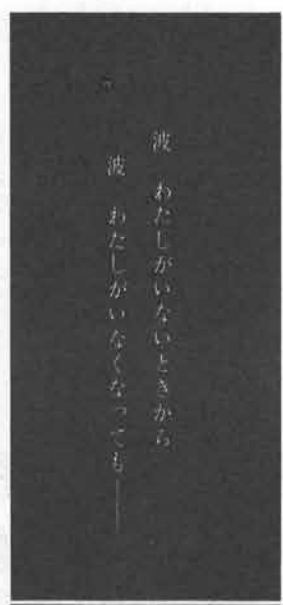 波　わたしがいないときから
波　わたしがいなくなっても――